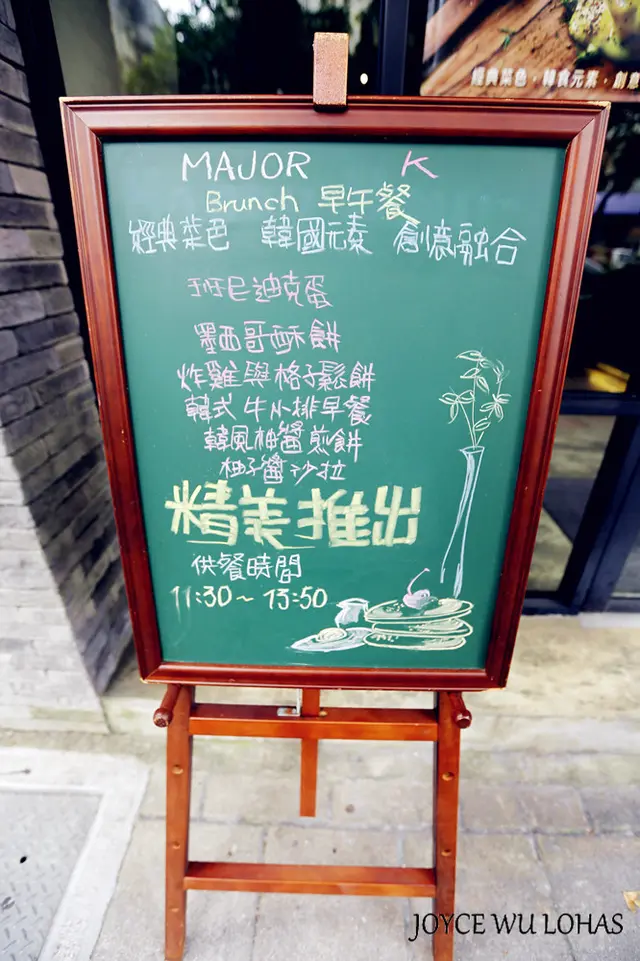 經典菜色，韓食元素，創意
MAJOR K
Brunch 早午餐
經典菜色 韓國元素 創意融合
班尼迪克蛋
墨西哥酥餅
炸雞與格子鬆餅
韓式牛小排早餐
韓風柚醬煎餅
柚子醬沙拉
精美推出
供餐時間
11:30~13:50
JOYCE WU LOHAS